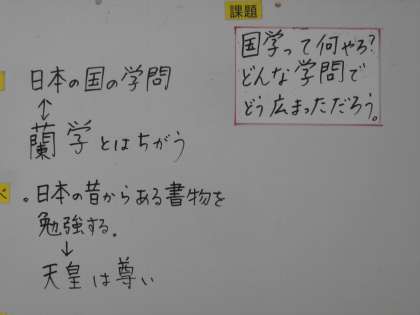 課題
国学って何やろ?
どんな学問で
どう広まっただろう。
日本の国の学問
↕
蘭学とはちがう
。日本の昔からある書物を
勉強する。
↓
天皇は尊い